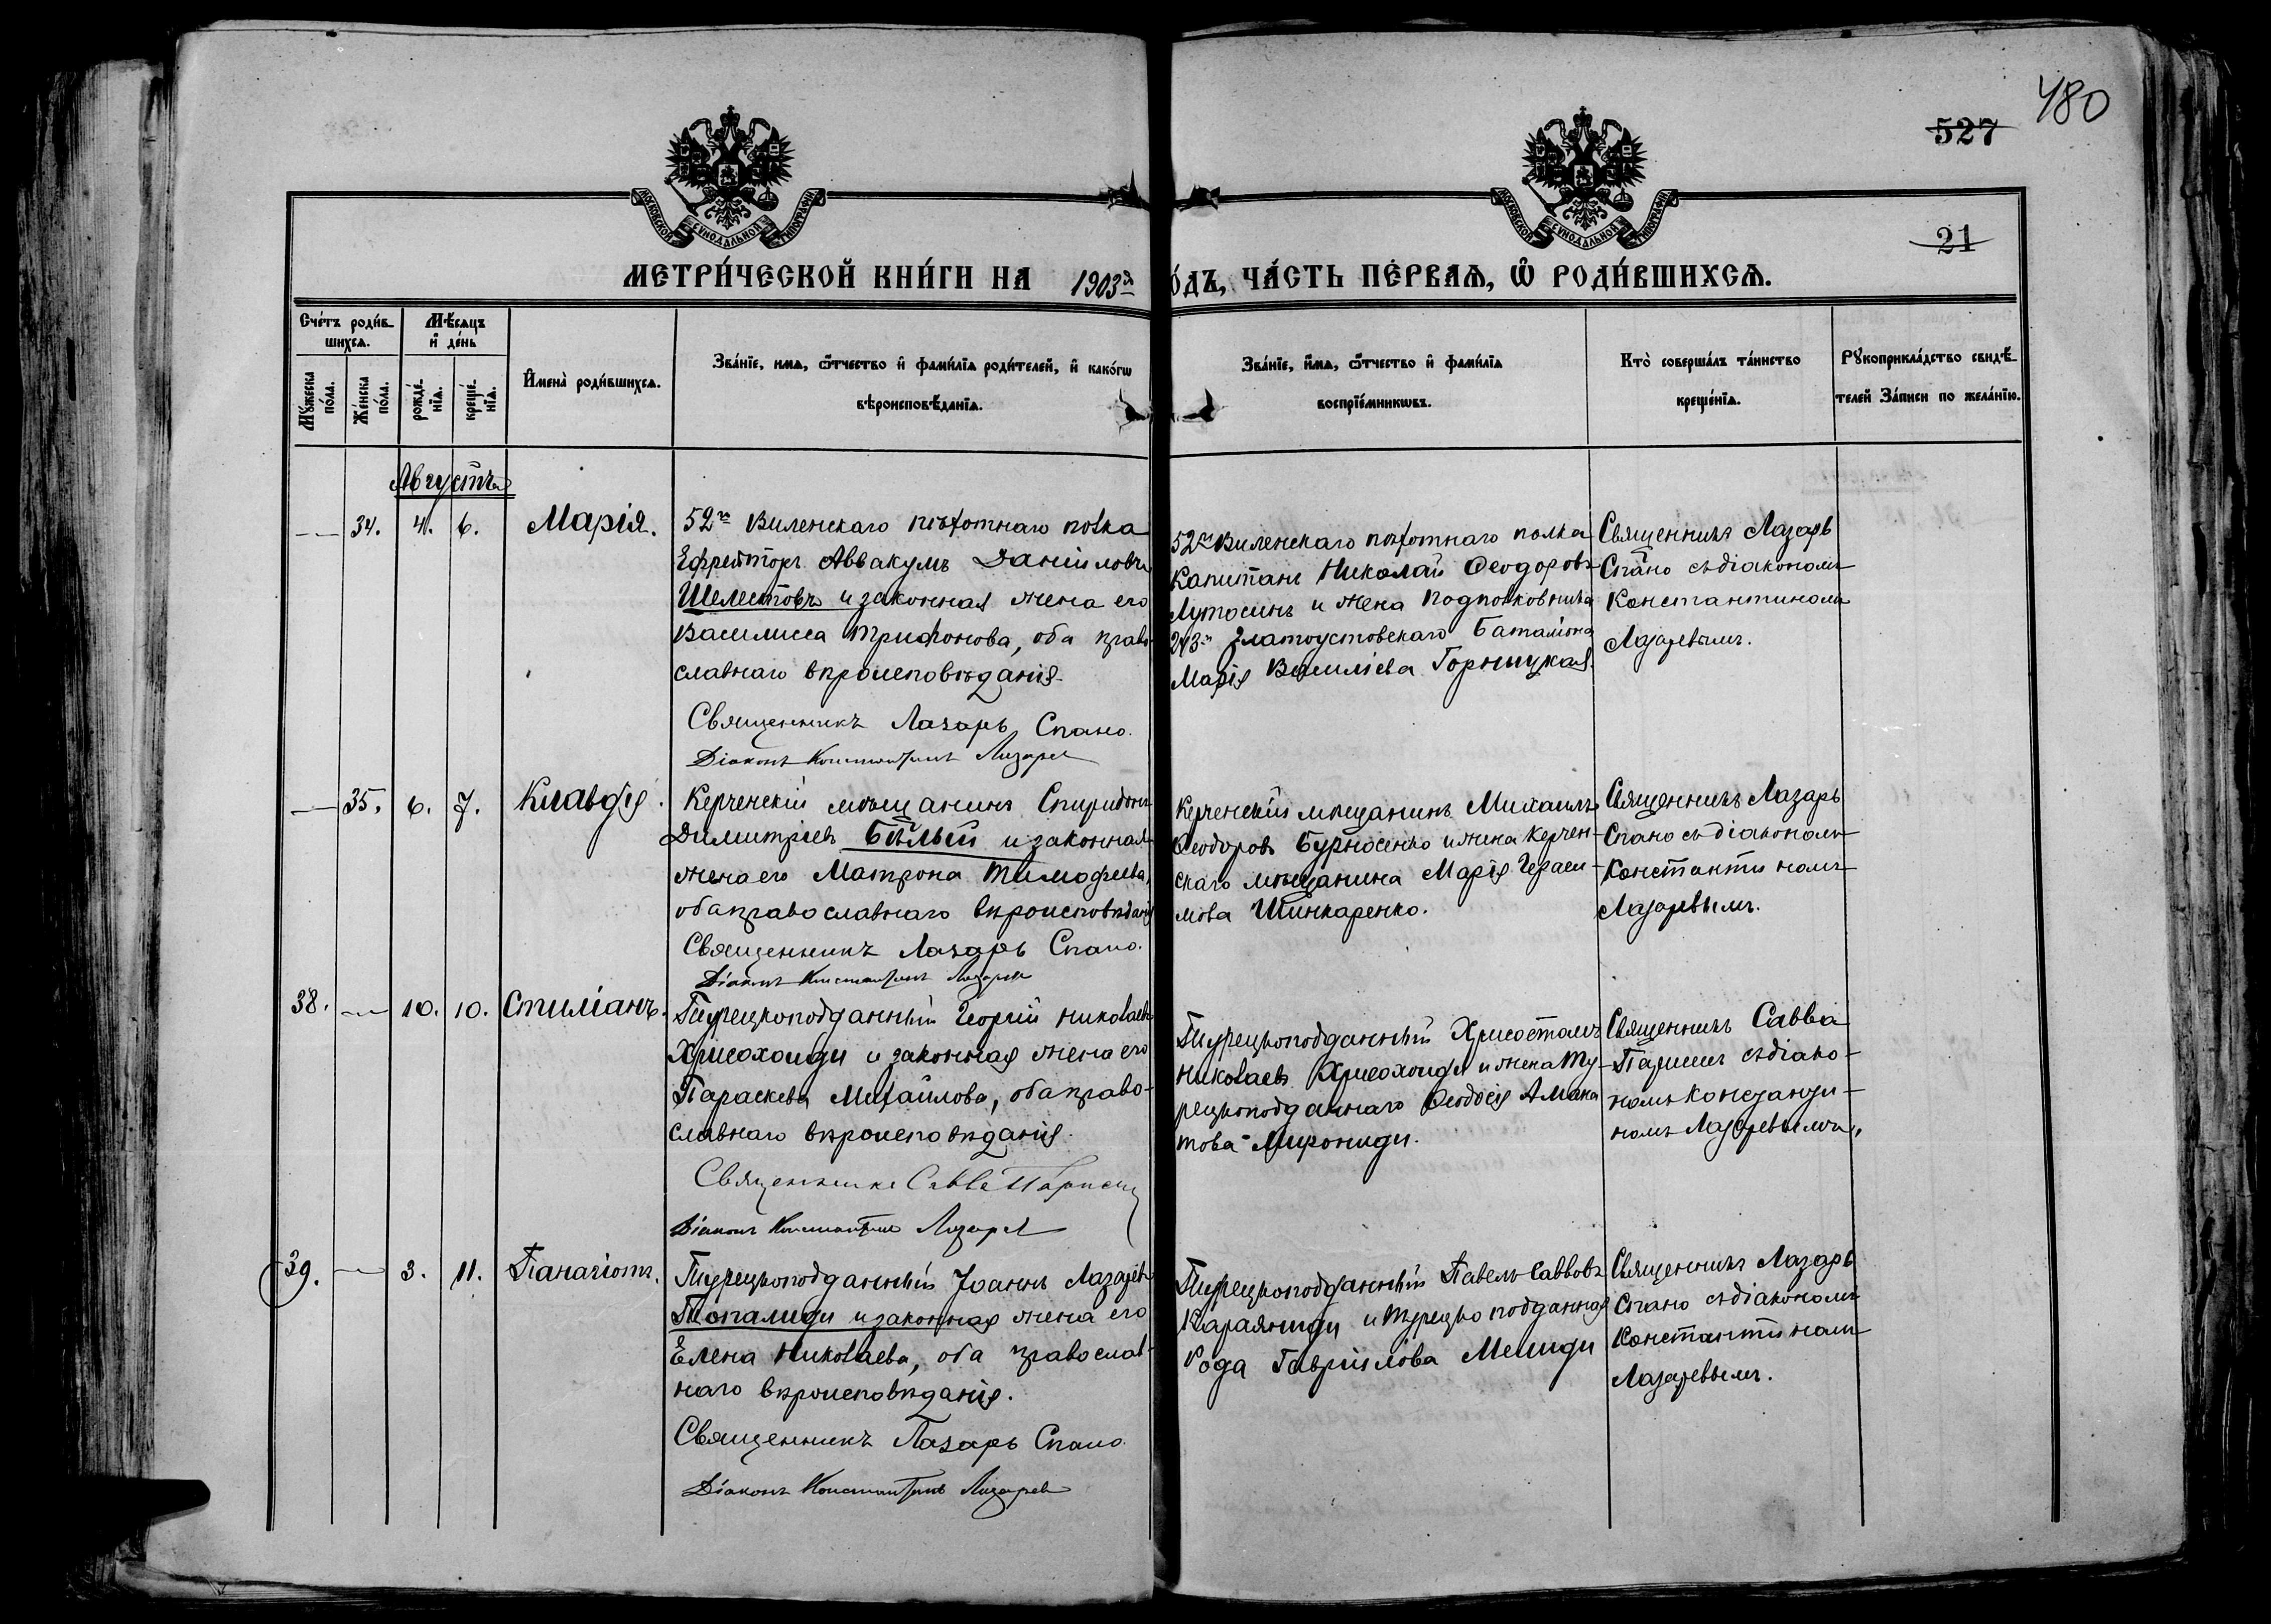 480
527
21
МОСКОВСКОЙ СѴНОДАЛЬНОЙ ТИПОГРАФІИ
МОСКОВСКОЙ СѴНОДАЛЬНОЙ ТИПОГРАФІИ
МЕТРИ́ЧЕСКОЙ КНИ́ГИ НА 1903й
О́ДЪ, ЧА́СТЬ ПЕ́РВАѦ, Ѿ РОДИ́ВШИХСѦ.
Сче́тъ роди́в-
шихсѧ.
Мѣ́сѧцъ
и҆ де́нь
Мꙋ́жеска по́ла.
Же́нска по́ла.
рожде́-
нїѧ.
креще́-
нїѧ.
И҆мена̀ роди́вшихсѧ.
Зва́нїе, имѧ, ѻ҆́тчество и҆ фами́лїѧ роди́телей, и҆ како́гѡ
вѣроисповѣ́данїѧ.
Зва́нїе, и҆́мѧ, ѻ҆́тчество и҆ фами́лїѧ
воспрїе́мникѡвъ.
Кто̀ соверша́лъ та́инство
креще́нїѧ.
Рꙋкоприкла́дство свидѣ́-
телей за́писи по жела́нїю.
Августъ
— 34. 4. 6. Марія.
52го Виленскаго пѣхотнаго полка
Ефрейторъ Аввакумъ Даніиловъ
Шелестовъ и законная жена его
Василисса Трифонова, оба право
славнаго вѣроисповѣданія
Священникъ Лазарь Спано.
Діаконъ Константинъ Лазарев
52го Виленскаго пѣхотнаго полка
Капитанъ Николай Ѳеодоровъ
и жена Подполковника
243го Златоустовскаго Баталіона
Марія Василіева Горницкая.
Священникъ Лазарь
Спано съ діакономъ
Константиномъ
Лазаревымъ.
— 35. 6. 7. Клавдія.
Керченскій мѣщанинъ Спиридонъ
Димитріевъ Бѣлый и законная
жена его Матрона Тимофеева,
оба православнаго вѣроисповѣданія
Священникъ Лазарь Спано.
Діаконъ Константинъ Лазарев
Керченскій мѣщанинъ Михаилъ
Ѳеодоровъ Бурносенко и жена Керчен-
скаго мѣщанина Марія Гераси-
мова Шинкаренко.
Священникъ Лазарь
Спано съ діакономъ
Константиномъ
Лазаревымъ.
38. — 10. 10. Стиліанъ.
Турецкоподданный Георгій Николаев
Хрисохоиди и законная жена его
Параскева Михайлова, оба право-
славнаго вѣроисповѣданія.
Священникъ Савва
Діаконъ Константинъ Лазарев
Турецкоподданный Хрисостомъ
Николаевъ Хрисохоиди и жена Ту-
рецкоподданнаго Ѳеодосія Амана
това Мирониди.
Священникъ Савва
съ діако-
номъ Констанди-
номъ Лазаревымъ.
39. — 3. 11. Панагіотъ.
Турецкоподданный Іоаннъ Лазарев
Топалиди и законная жена его
Елена Николаева, оба православ-
наго вѣроисповѣданія.
Священникъ Лазарь Спано
Діаконъ Константинъ Лазарев
Турецкоподданный Павелъ Саввовъ
Караяниди и Турецкоподданная
Рода Гавріилова Мелиди
Священникъ Лазарь
Спано съ діакономъ
Константиномъ
Лазаревымъ.